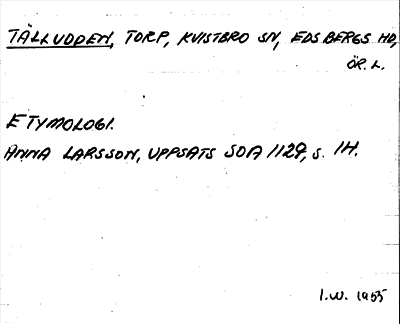 TÄLLUDDEN, TORP, KVISTBRO SN, EDSBERGS HD,
ÖR. L.
ETYMOLOGI.
ANNA LARSSON, UPPSATS SOA 1129, S. 14.
I.W. 1955